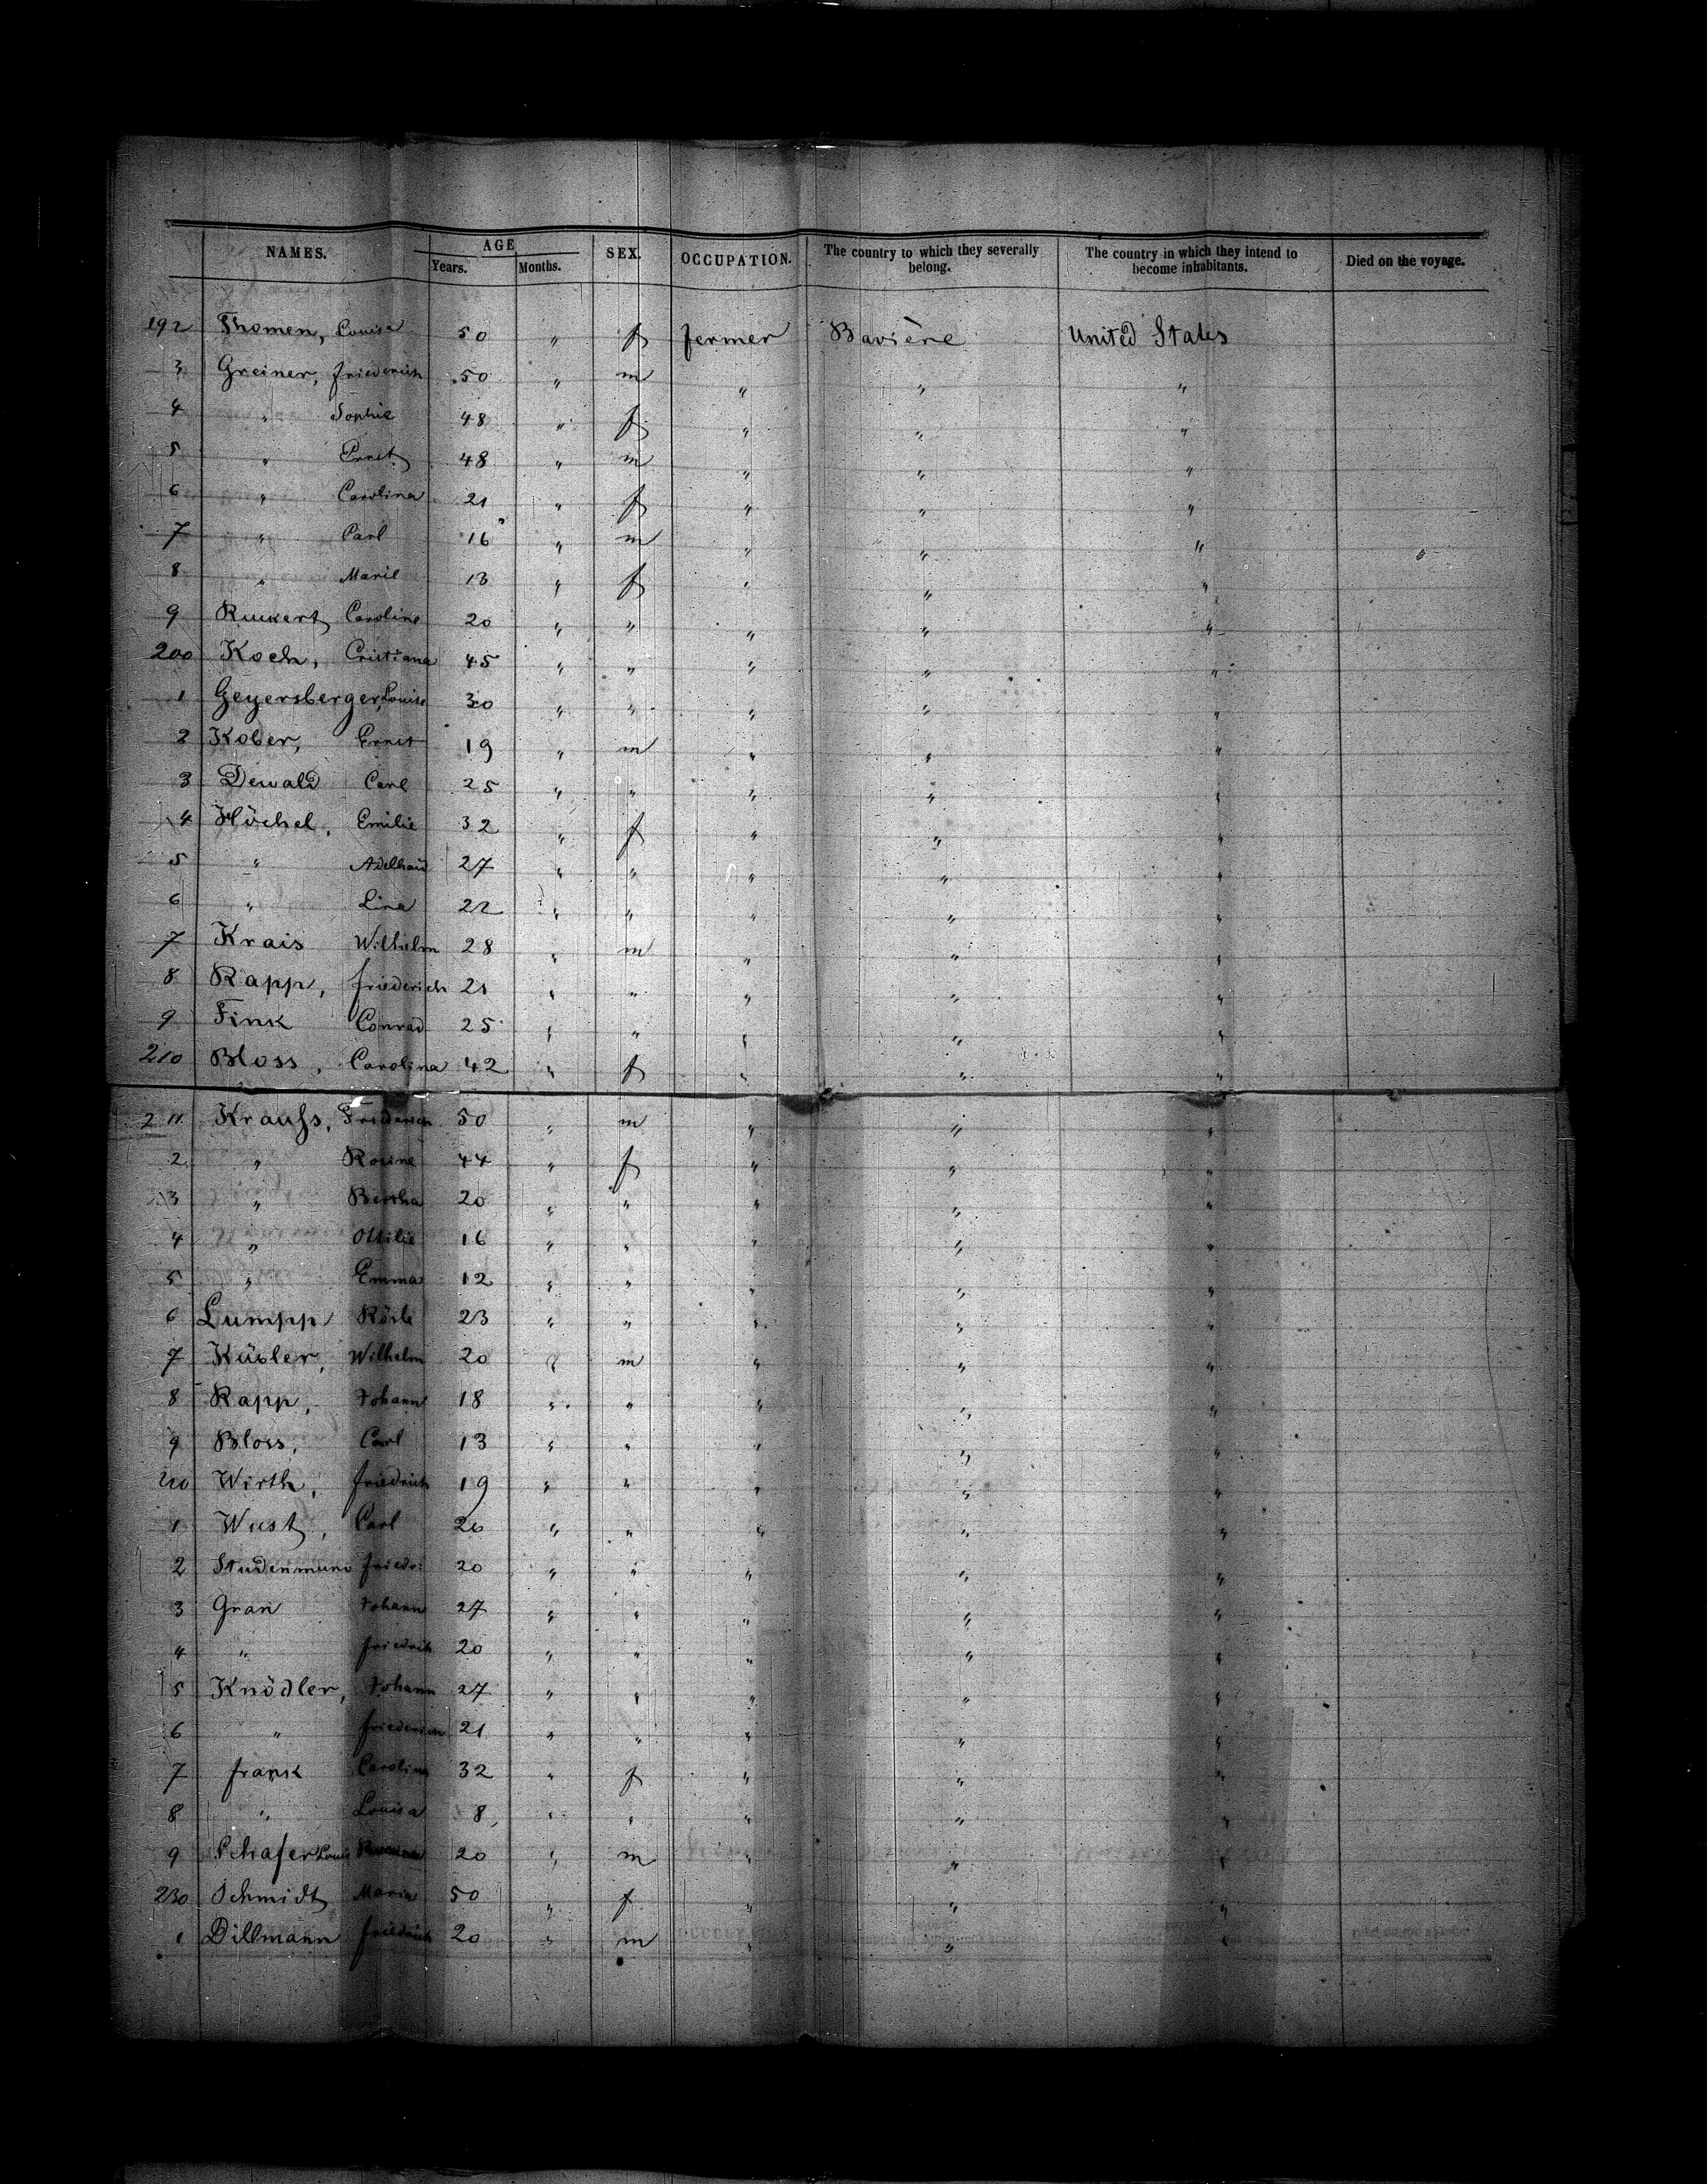 NAMES. AGE SEX. OCCUPATION. The country to which they severally belong. The country in which they intend to become inhabitants. Died on the voyage.
Years. Months.
192 Thomen, Louisa 50 " f fermer Bavière United States
3 Greiner, friederich 50 " m " " "
4 " Sophie 48 " f " " "
5 " Ernst 48 " m " " "
6 " Carolina 21 " f " " "
7 " Carl 16 " m " " "
8 " Marie 13 " f " " "
9 Ruckert Caroline 20 " " " " "
200 Koch, Cristiana 45 " " " " "
1 Geyersberger, Louise 30 " " " " "
2 Kober, Ernst 19 " m " " "
3 Dewald Carl 25 " " " " "
4 Höchel, Emilie 32 " f " " "
5 " Adelhaid 27 " " " " "
6 " Lina 22 " " " " "
7 Krais Wilhelm 28 " m " " "
8 Rapp, friederich 21 " " " " "
9 Fink Conrad 25 " " " " "
210 Bloss, Carolina 42 " f " " "
211 Krauss, Friederich 50 " m " " "
2 " Rosine 44 " f " " "
3 " Bertha 20 " " " " "
4 " Ottilie 16 " " " " "
5 " Emma 12 " " " " "
6 Lumpp Rösle 23 " " " " "
7 Kübler, Wilhelm 20 " m " " "
8 Rapp, Johann 18 " " " " "
9 Bloss, Carl 13 " " " " "
220 Wirth, friedrich 19 " " " " "
1 Wust, Carl 26 " " " " "
2 Studenmund friedr: 20 " " " " "
3 Gran Johann 27 " " " " "
4 " friedrich 20 " " " " "
5 Knödler, Johann 27 " " " " "
6 " friederich 21 " " " " "
7 frank Carolina 32 " f " " "
8 " Louisa 8 " " " " "
9 Schafer Louis 20 " m " " "
230 Schmidt Maria 50 " f " " "
1 Dillmann friedrich 20 " m " " "